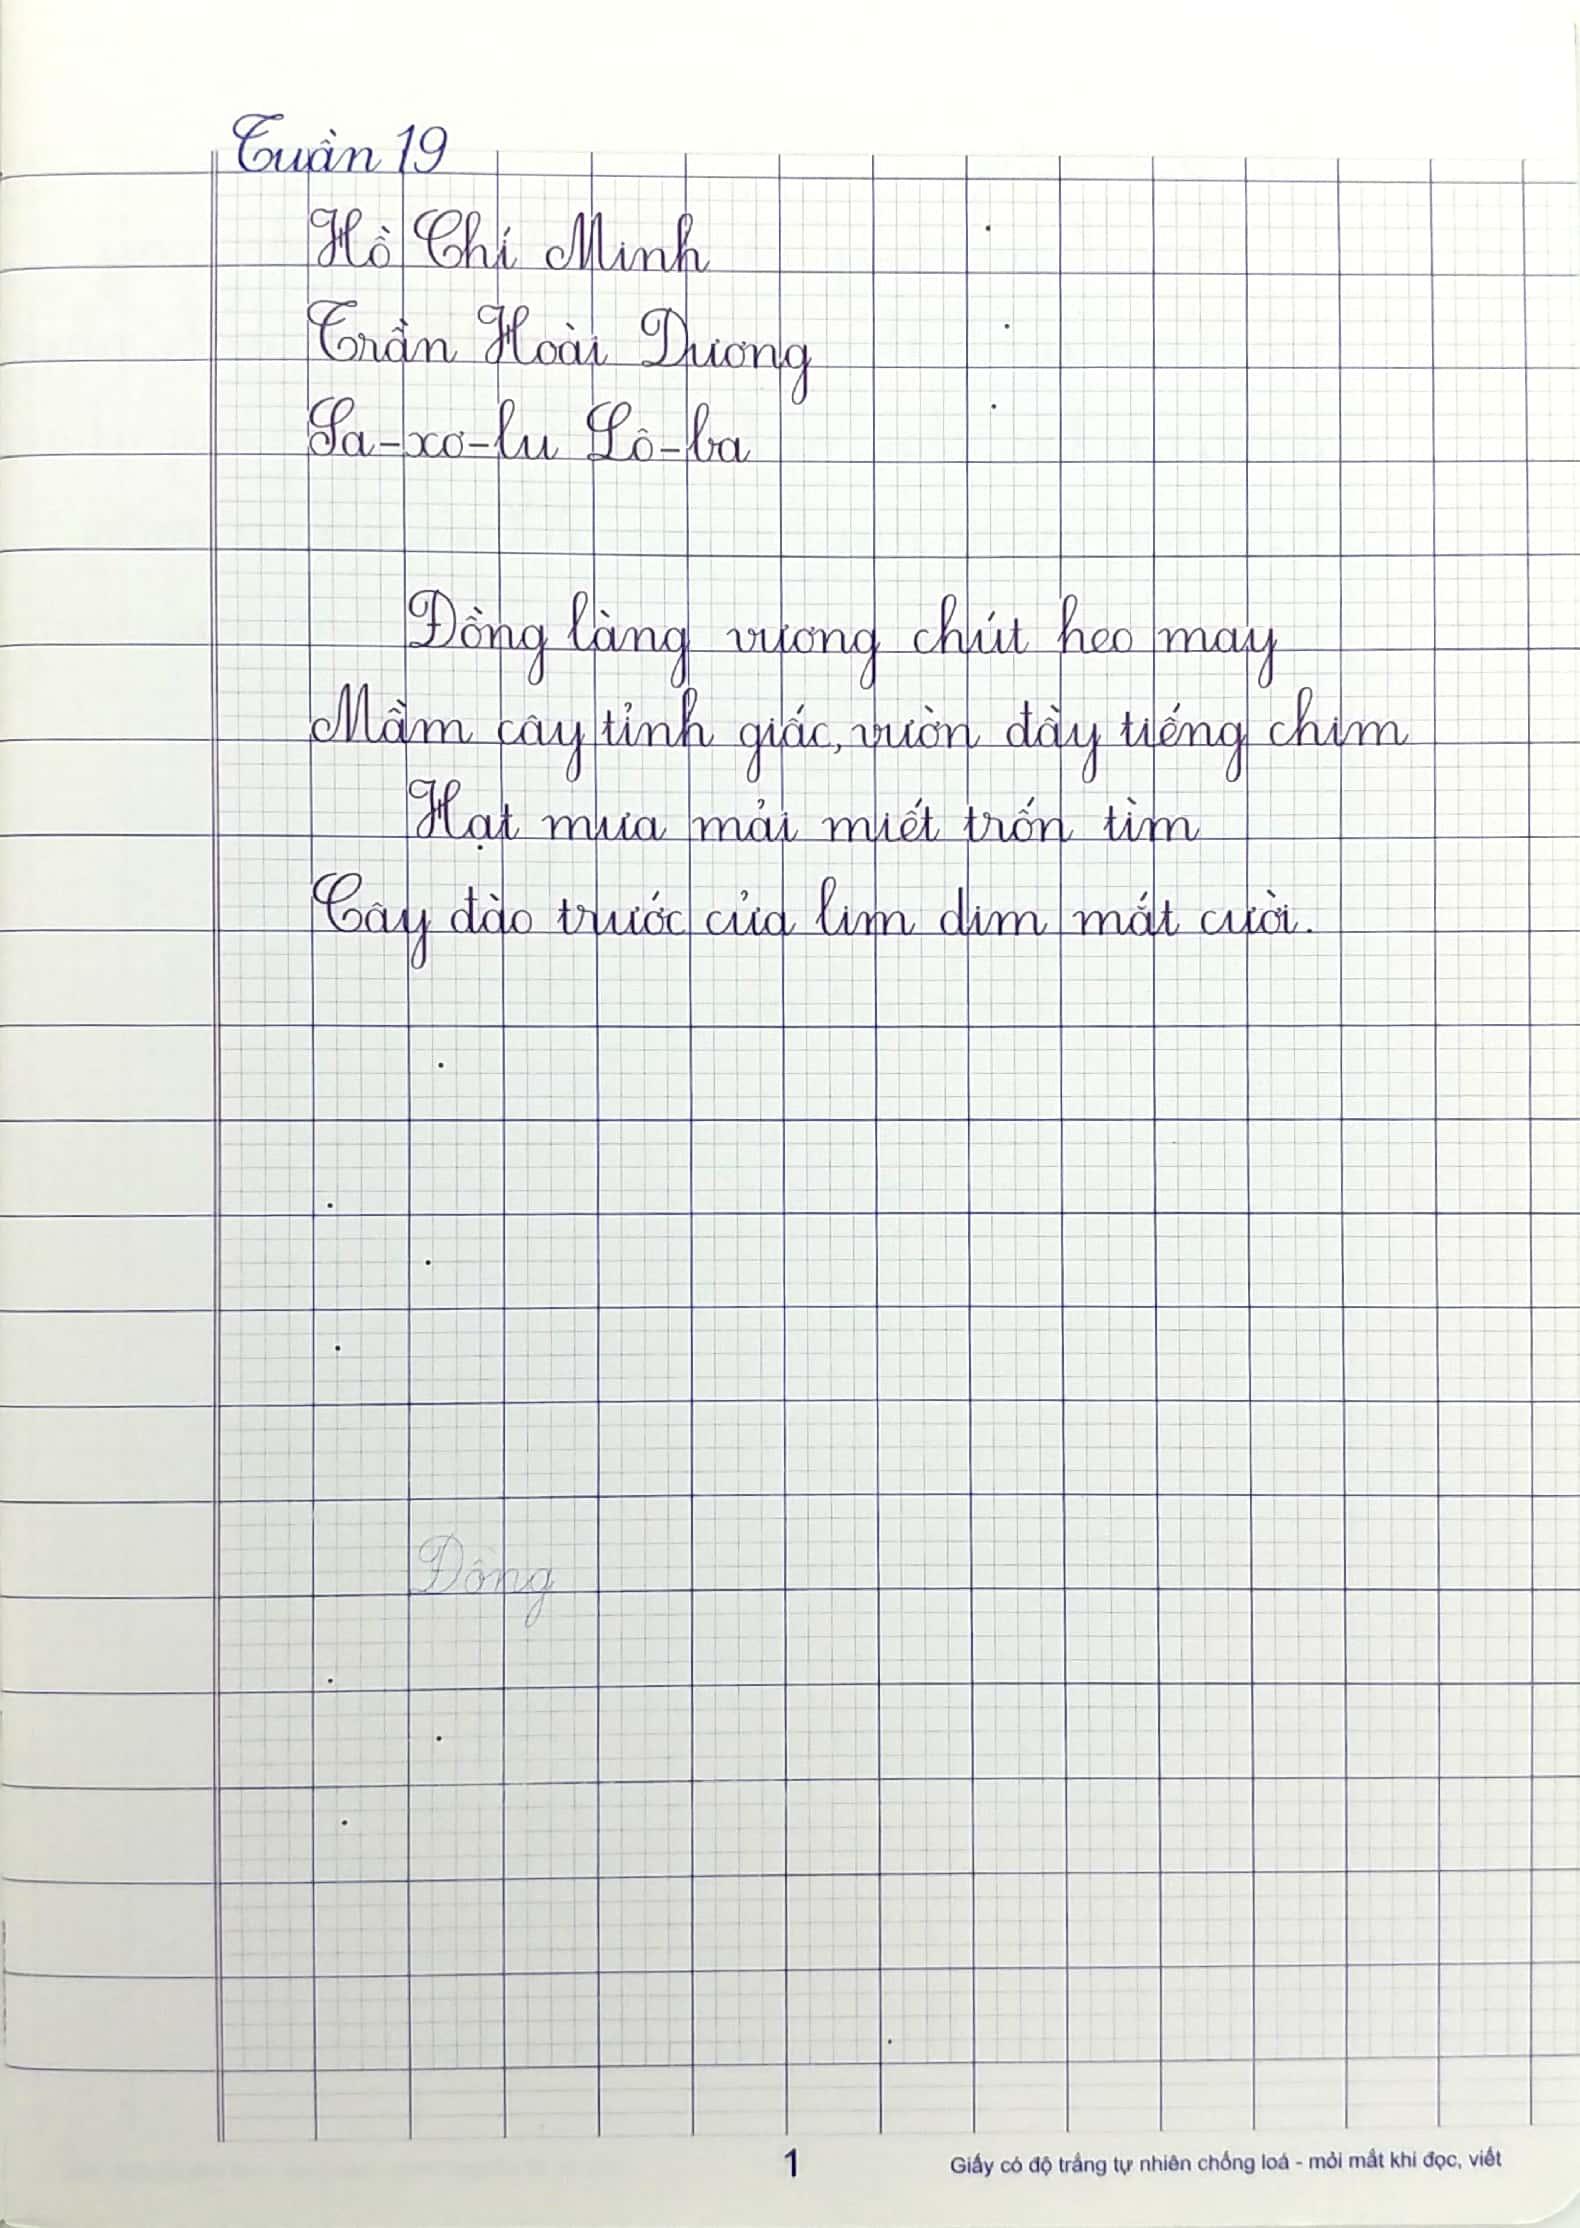 Tuần 19
Hồ Chí Minh
Trần Hoài Dương
Sa-xơ-lu Lô-ba
Đồng làng vương chút heo may
Mầm cây tỉnh giấc, vườn đầy tiếng chim
Hạt mưa mải miết trốn tìm
Cây đào trước cửa lim dim mắt cười.
Đông
1
Giấy có độ trắng tự nhiên chống loá - mỏi mắt khi đọc, viết